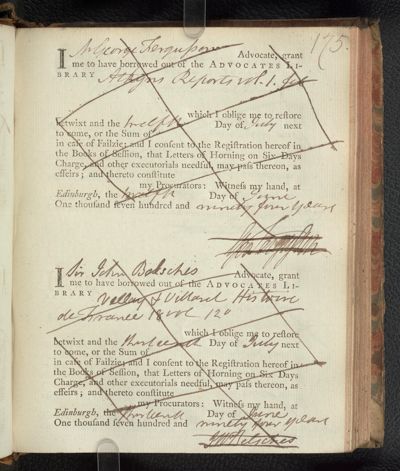 175.
I Mr George Fergusson Advocate, grant
me to have borrowed out of the ADVOCATES LI-
BRARY Atkyns Reports vol. 1. fol
which I oblige me to restore
betwixt and the twelfth Day of July next
to come, or the Sum of
in case of Failzie; and I consent to the Registration hereof in
the Books of Session, that Letters of Horning on Six Days
Charge, and other executorials needful, may pass thereon, as
effeirs; and thereto constitute
my Procurators: Witness my hand, at
Edinburgh, the twelfth Day of June
One thousand seven hundred and ninety four years
Geo Fergusson
I Sir John Belsches Advocate, grant
me to have borrowed out of the ADVOCATES LI-
BRARY Velley & Villaret Histoire
de France 18 vol 12o
which I oblige me to restore
betwixt and the thirteenth Day of July next
to come, or the Sum of
in case of Failzie; and I consent to the Registration hereof in
the Books of Session, that Letters of Horning on Six Days
Charge, and other executorials needful, may pass thereon, as
effeirs; and thereto constitute
my Procurators: Witness my hand, at
Edinburgh, the thirteenth Day of June
One thousand seven hundred and ninety four years
Belsches